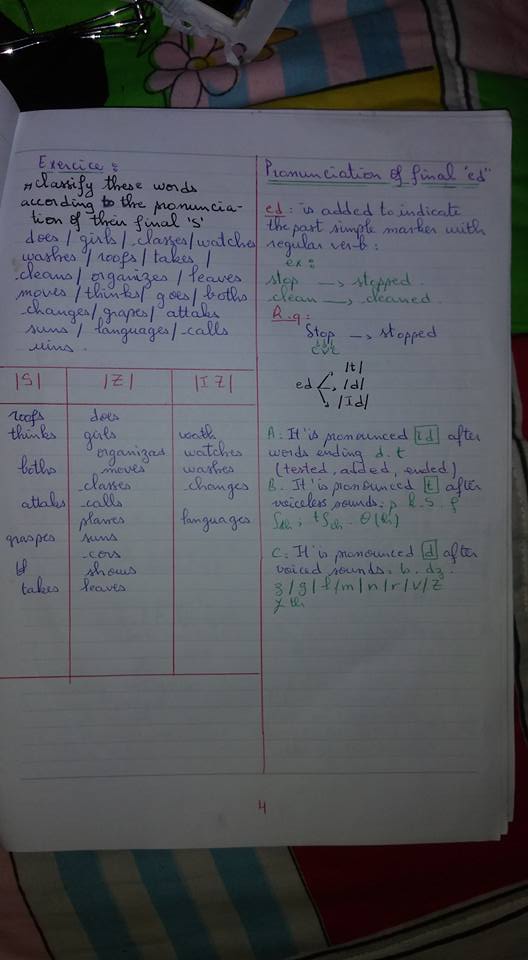 Exercice :
classify these words
according to the pronuncia-
tion of their final 'S'
does / girls / classes / watches
washes / roofs / takes /
cleans / organizes / leaves
moves / thinks / goes / boths
changes / grapes / attaks
suns / languages / calls
|S| |Z| |I Z|
roofs does
thinks girls
organizas watches
boths moves washes
classes changes
attaks calls
planes languages
graspes suns
cors
shows
takes leaves
Pronunciation of final "ed"
ed : is added to indicate
the past simple marker with
regular verb :
ex :
stop → stopped
clean → cleaned
R.q :
Stop → stopped
cvc
|t|
ed |d|
|Id|
A : It is pronounced id after
words ending d. t
(tested, added, ended)
B. It is pronounced t after
voiceless sounds : p k. S. f
ʃsh ; tʃch. θ(th)
C : It is pronounced d after
voiced sounds : b. dz.
3 / g / l / m / n / r / v / z
th
4